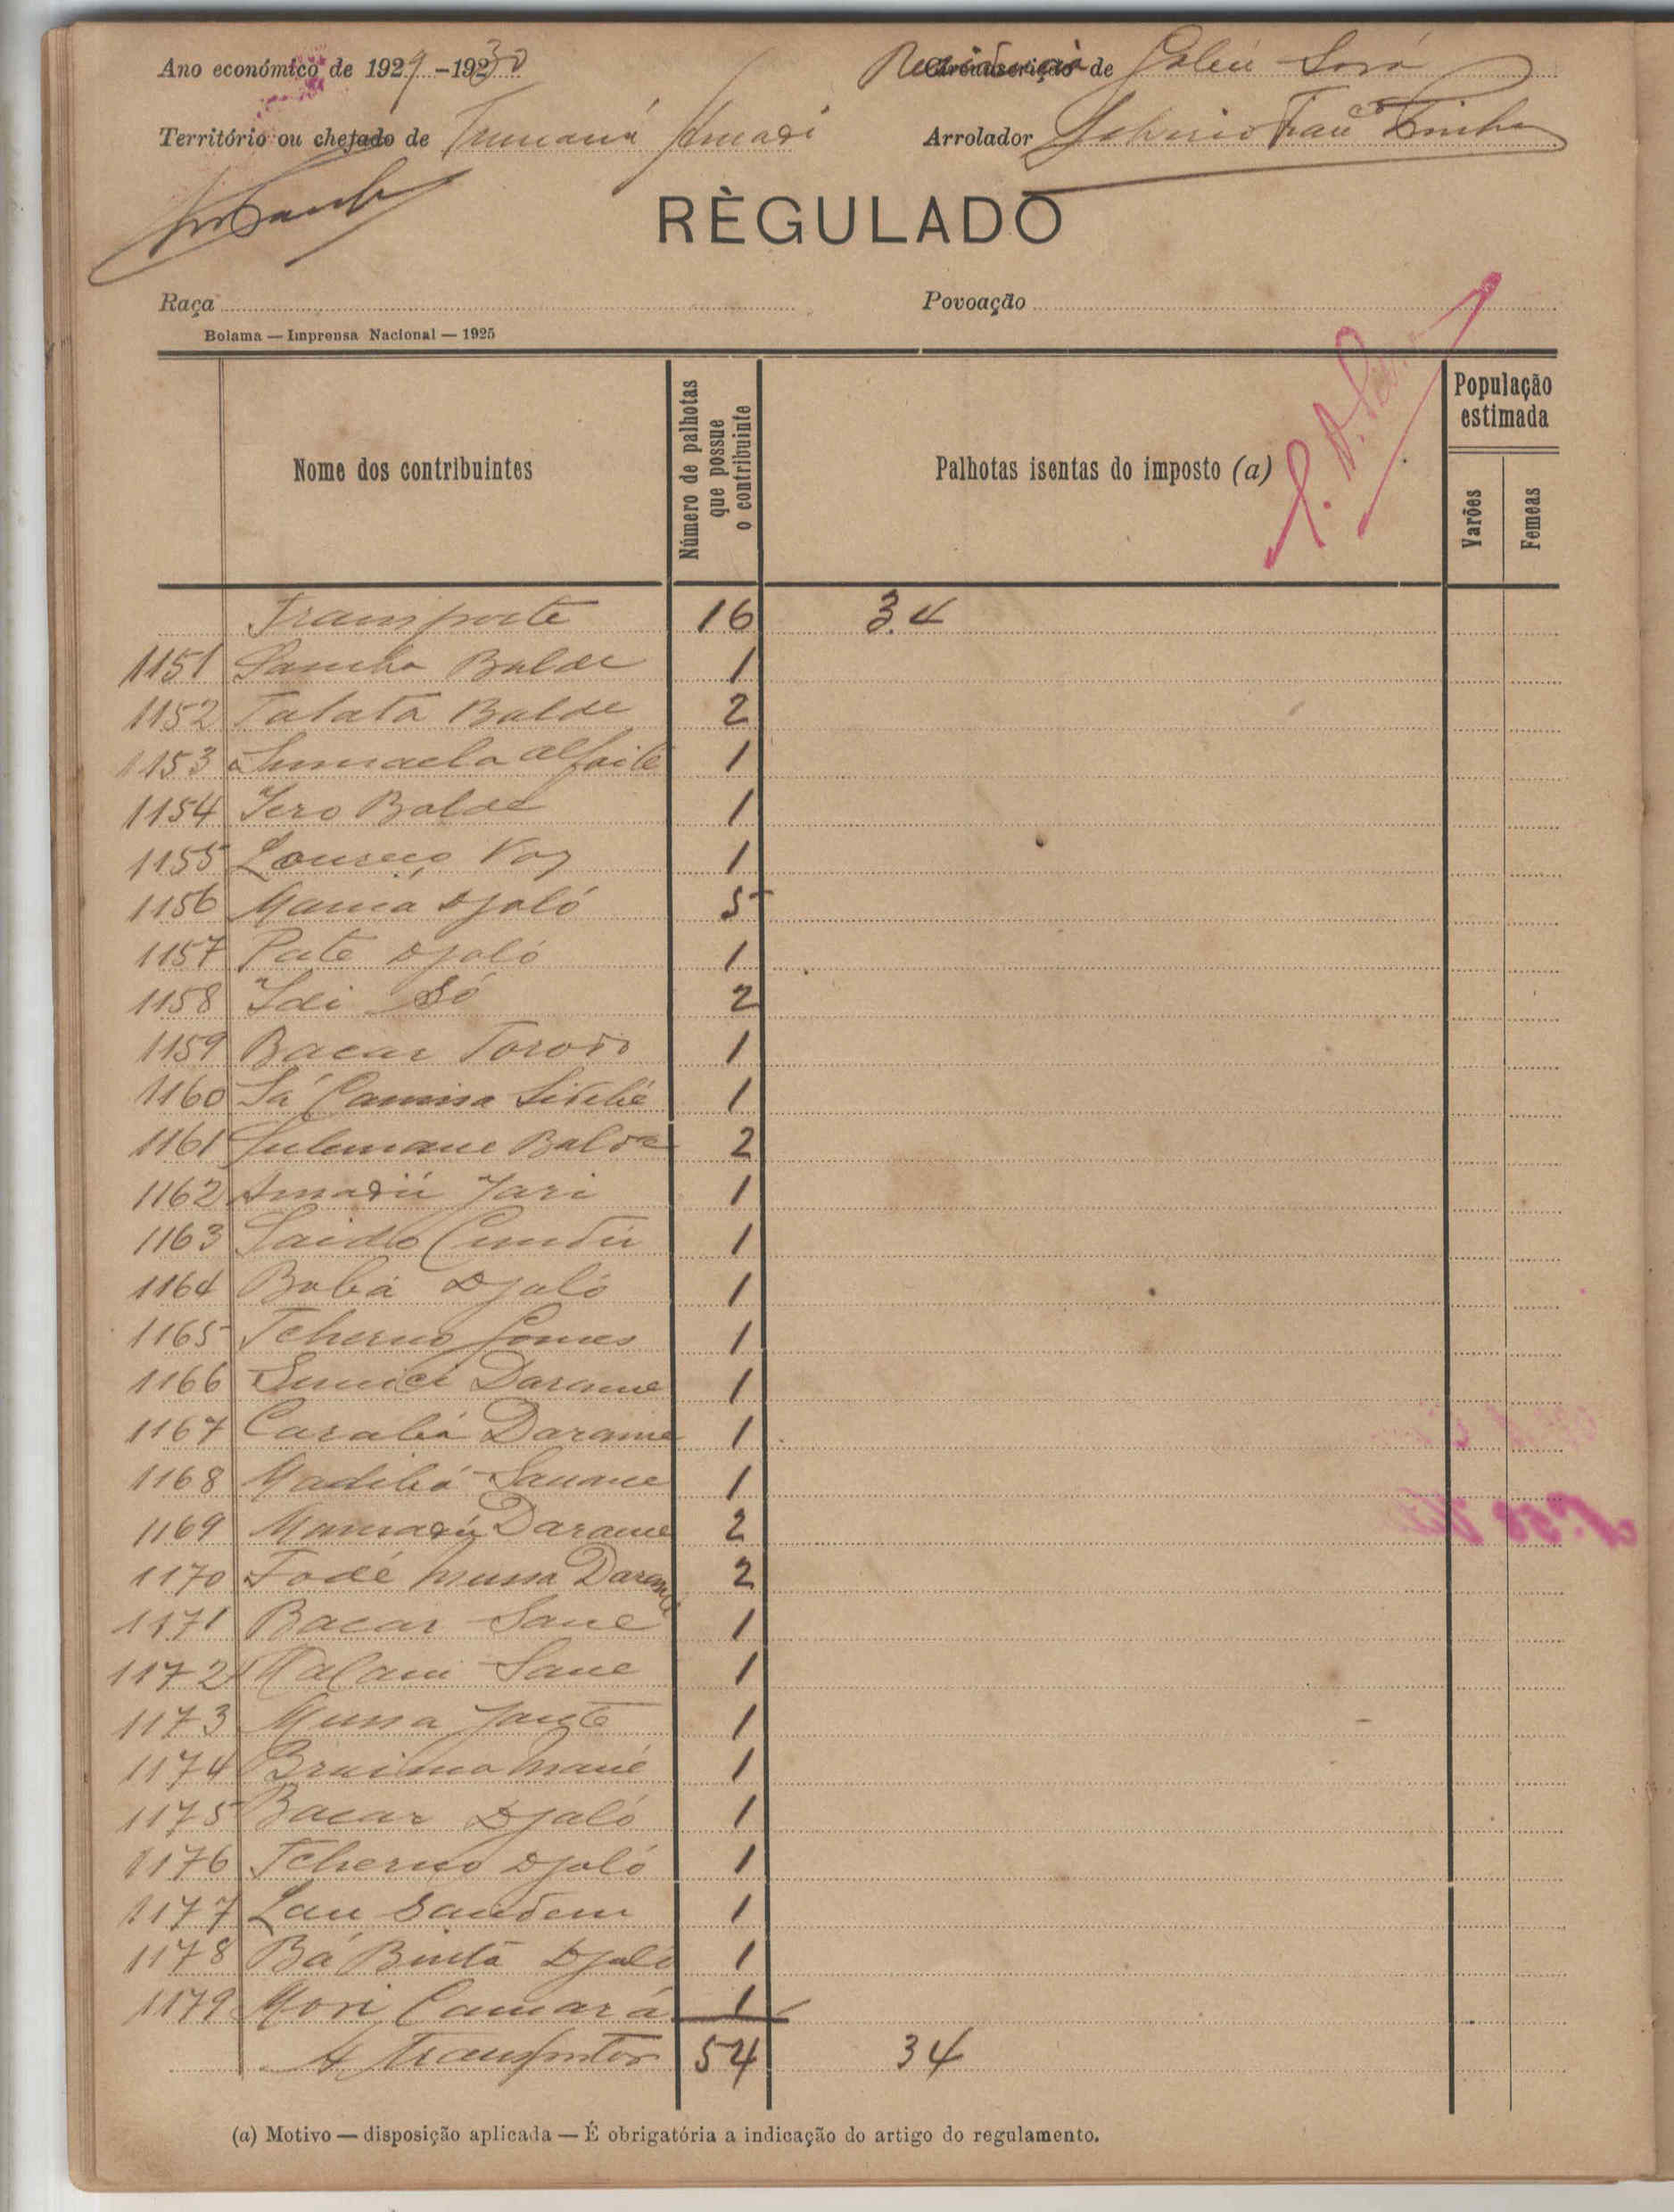 Ano económico de 1929-1930
Residencia de Gabú Sorá
Território ou chefado de Tumaná
Arrolador
RÈGULADO
Raça
Povoação
Bolama — Imprensa Nacional — 1925
Nome dos contribuintes
Número de palhotas que possue o contribuinte
Palhotas isentas do imposto (a)
População estimada
Varões
Femeas
Transporte 16 34
1151 Samba Balde 1
1152 Balde 2
1153 1
1154 Iero Balde 1
1155 Lourenço Vaz 1
1156 Djaló 5
1157 Pate Djaló 1
1158 Idi Só 2
1159 Bacar Torodo 1
1160 Sá 1
1161 Sulemane Balde 2
1162 Amadú 1
1163 Saido Cundú 1
1164 Bobá Djaló 1
1165 Tcherno Gomes 1
1166 Darame 1
1167 Carabá Darame 1
1168 1
1169 Mamadú Darame 2
1170 Fodé Mussa Darame 2
1171 Bacar Sane 1
1172 Sane 1
1173 Mussa 1
1174 Braima Mané 1
1175 Bacar Djaló 1
1176 Tcherno Djaló 1
1177 1
1178 Bá Binta Djaló 1
1179 Mori Camará 1
A Transportar 54 34
(a) Motivo — disposição aplicada — É obrigatória a indicação do artigo do regulamento.